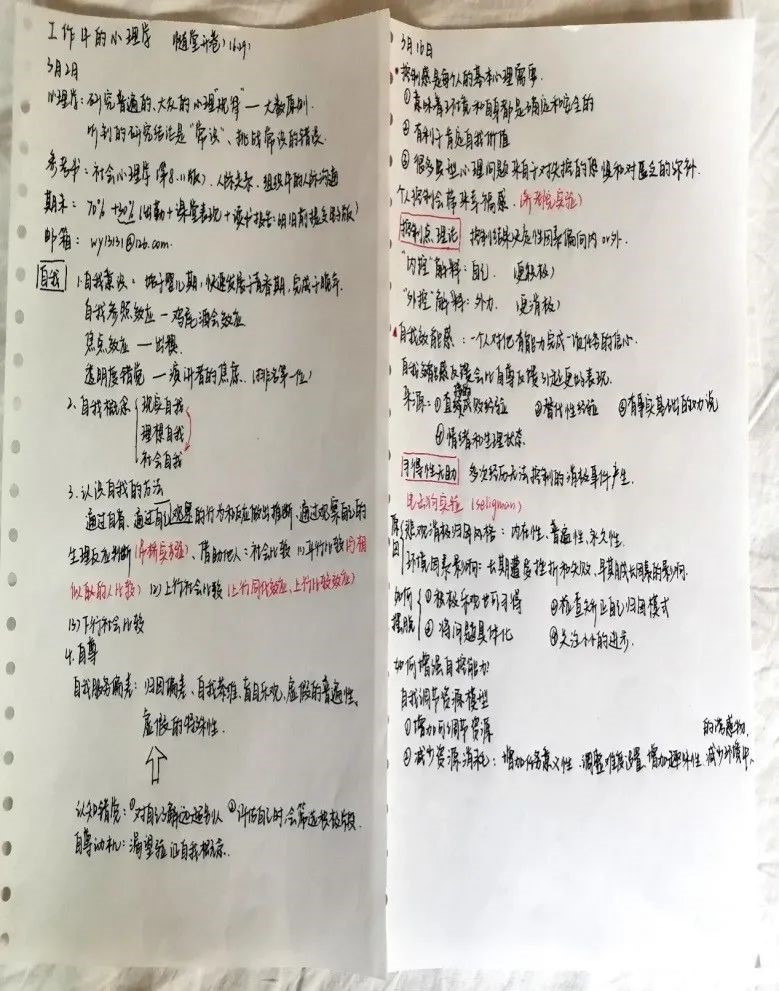 工作中的心理学 随堂开卷
3月2日
心理学：研究普遍的、大众的心理"规律"—大数原则.
得到的研究结论是"常识"、挑战常识的错误.
参考书：社会心理学（第8、11版）、人际关系、组织中的人际沟通
期末：70% +30%（出勤+课堂表现+
邮箱：wy13131@126.com.
自我 1.自我意识：始于婴儿期，快速发展于青春期，完成于
自我参照效应—鸡尾酒会效应
焦点效应—出糗
透明度错觉—演讲者的焦虑.（排名第一位）
2.自我概念 现实自我
理想自我
社会自我
3.认识自我的方法
通过自省、通过自己观察的行为和反应做出推断、通过观察自己的
生理反应判断（吊桥实验）、借助他人：社会比较（1）平行比较（与相
似的人比较）（2）上行社会比较（上行同化效应、上行比较效应）
（3）下行社会比较
4.自尊
自我服务偏差：归因偏差、自我美化、盲目乐观、虚假的普遍性、
虚假的特殊性.
认知错觉：①对自己了解远远超别人 ②评估自己时会筛选积极片段.
自尊动机：渴望验证自我概念.
3月16日
控制感是每个人的基本心理需求.
①意味着环境和自身都是确定和安全的
②有利于肯定自我价值
③很多典型心理问题来自于对失控的恐惧和对
个人控制会带来幸福感.（养老院实验）
控制点理论 控制结果决定性因素偏向内or外.
"内控"解释：自己.（更积极）
"外控"解释：外力.（更消极）
自我效能感：一个人对他有能力完成一项任务的信心.
自我效能感反馈会比自尊反馈引起更好的表现.
来源：①直接成败经验 ②替代性经验 ③有事实基础的劝说
④情绪和生理状态.
习得性无助 多次经历无法控制的消极事件产生.
电击狗实验（Seligman）
原因 悲观消极归因风格：内在性、普遍性、永久性.
环境因素影响：长期遭多挫折和失败、早期成长因素的影响.
如何摆脱 ①积极乐观也可习得 ③检查矫正自己归因模式
②将问题具体化 ④关注小小的进步.
如何增强自控能力？
自我调节资源模型
①增加可调节资源 的诱惑物.
②减少资源消耗：增加任务意义性、调整难度设置、增加趣味性、减少环境中